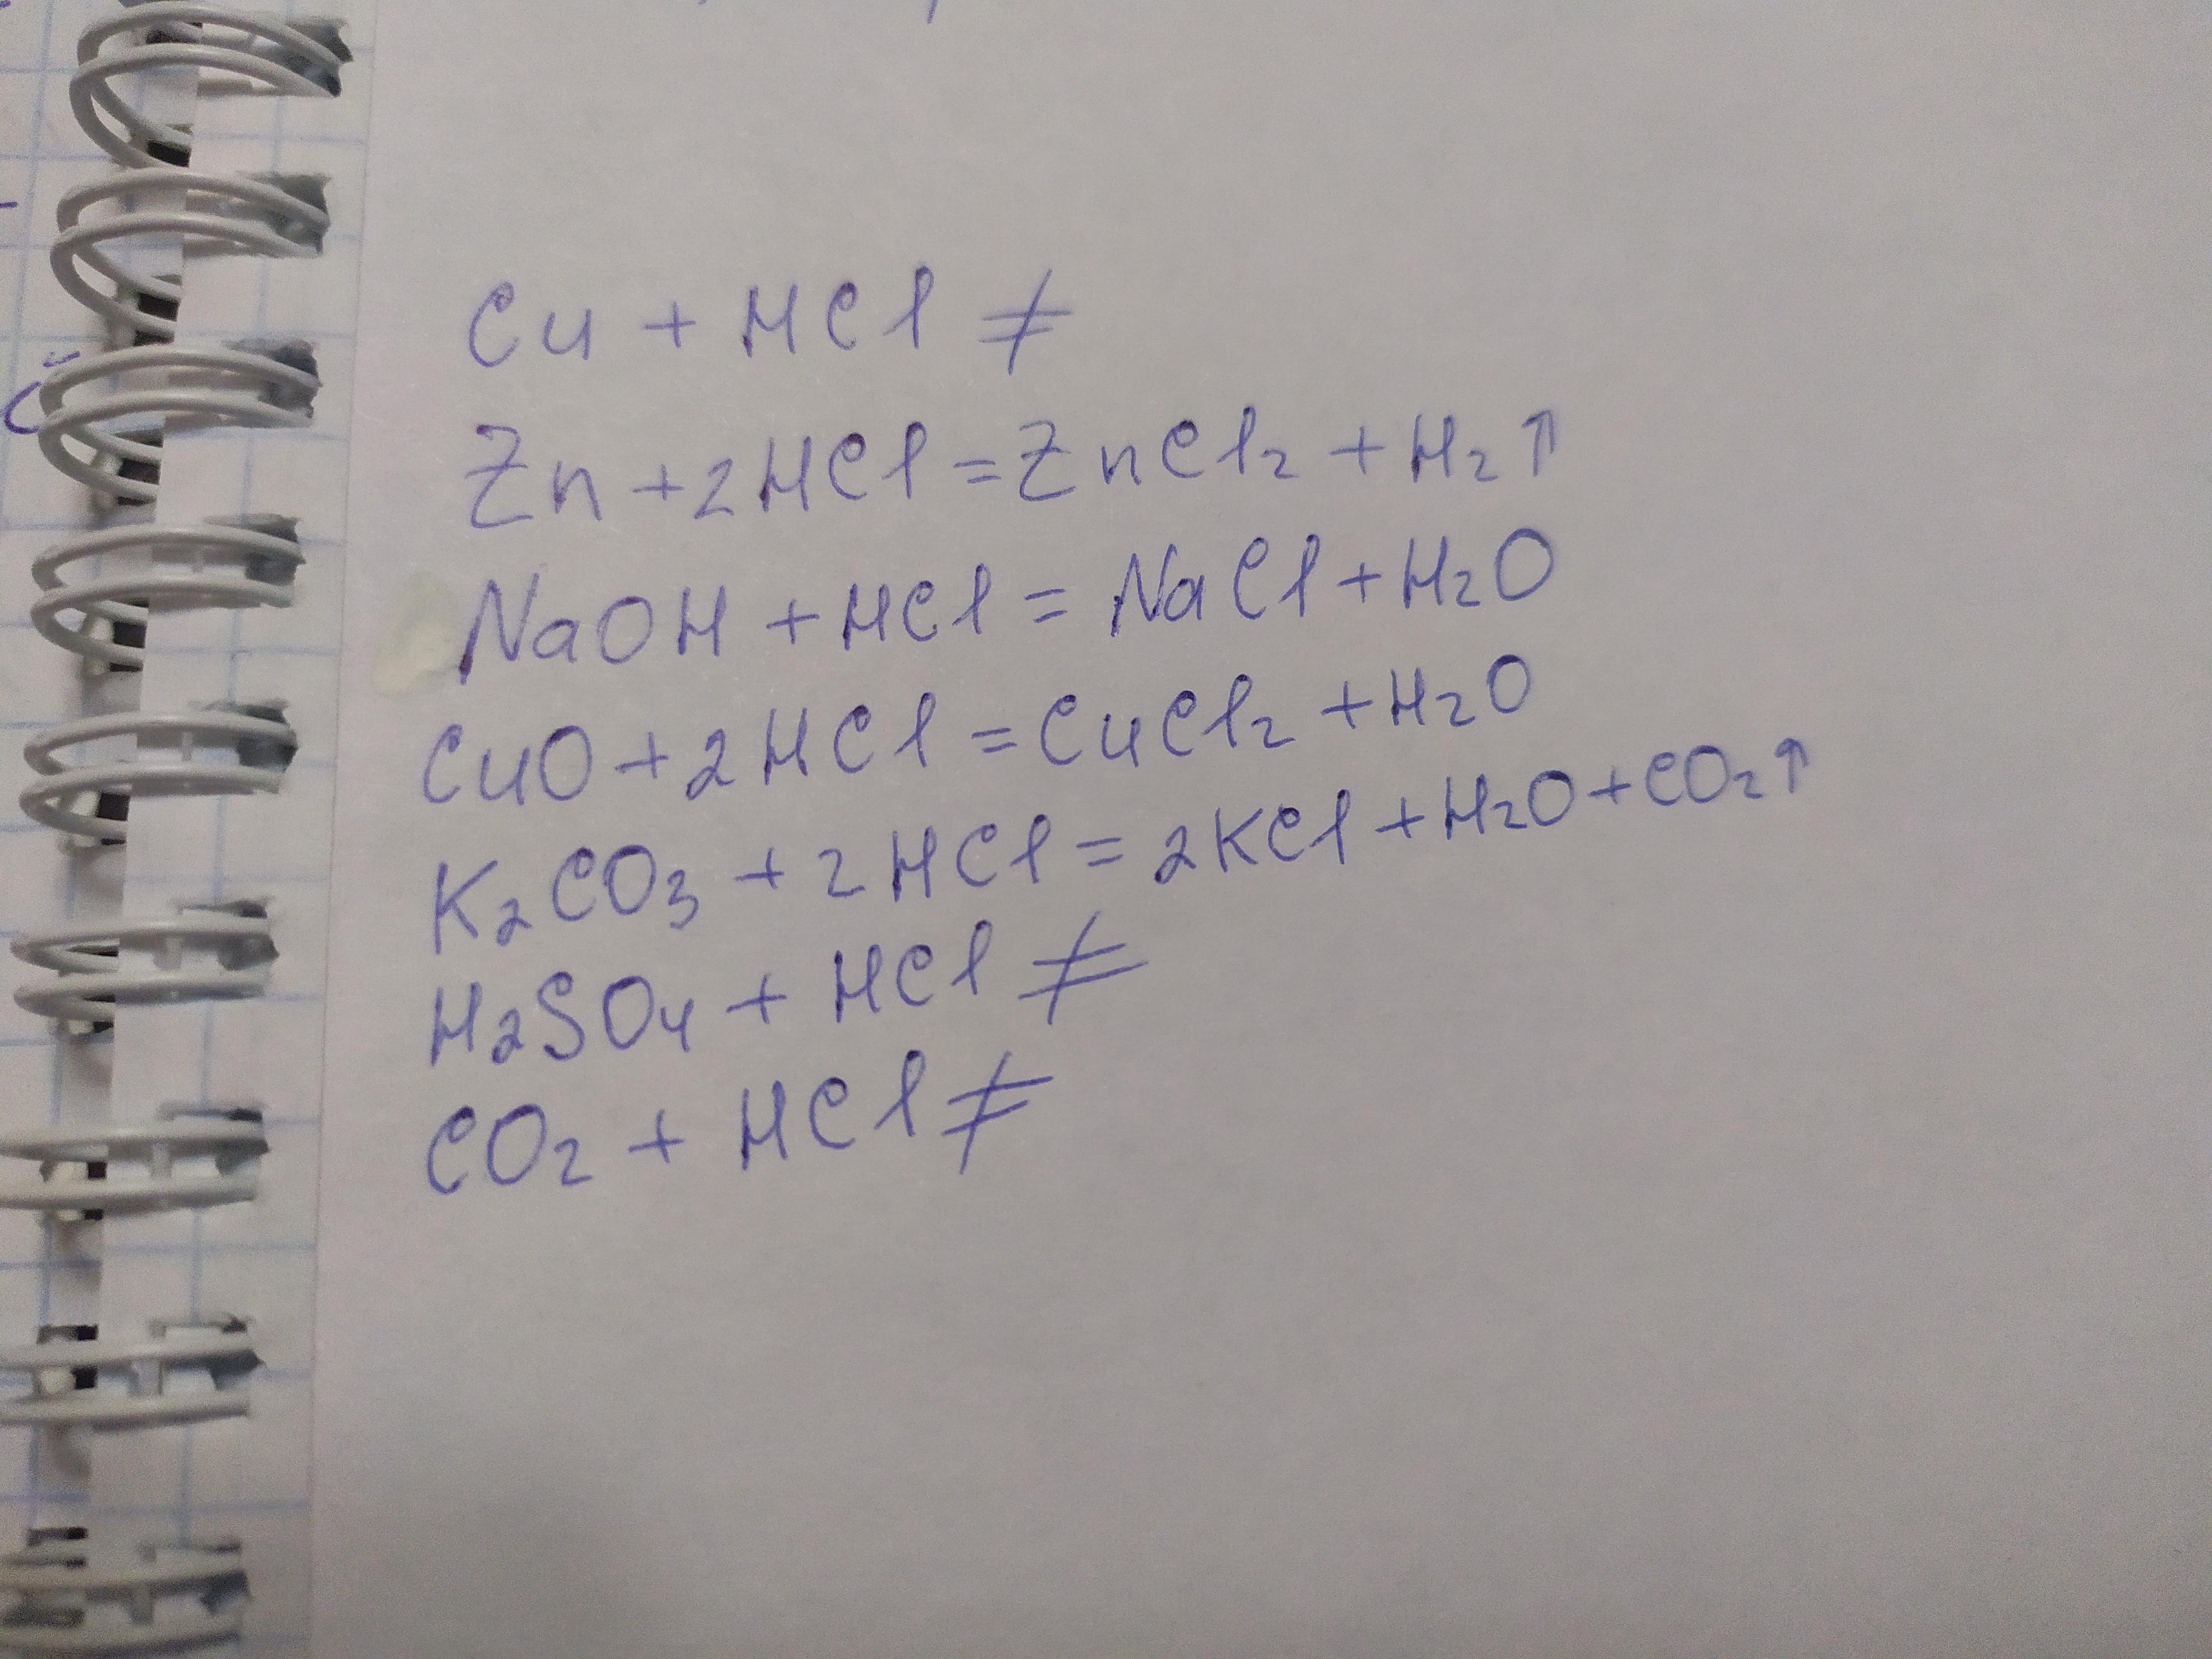 Cu + HCl ≠
Zn + 2HCl = ZnCl₂ + H₂↑
NaOH + HCl = NaCl + H₂O
CuO + 2HCl = CuCl₂ + H₂O
K₂CO₃ + 2HCl = 2KCl + H₂O + CO₂↑
H₂SO₄ + HCl ≠
CO₂ + HCl ≠